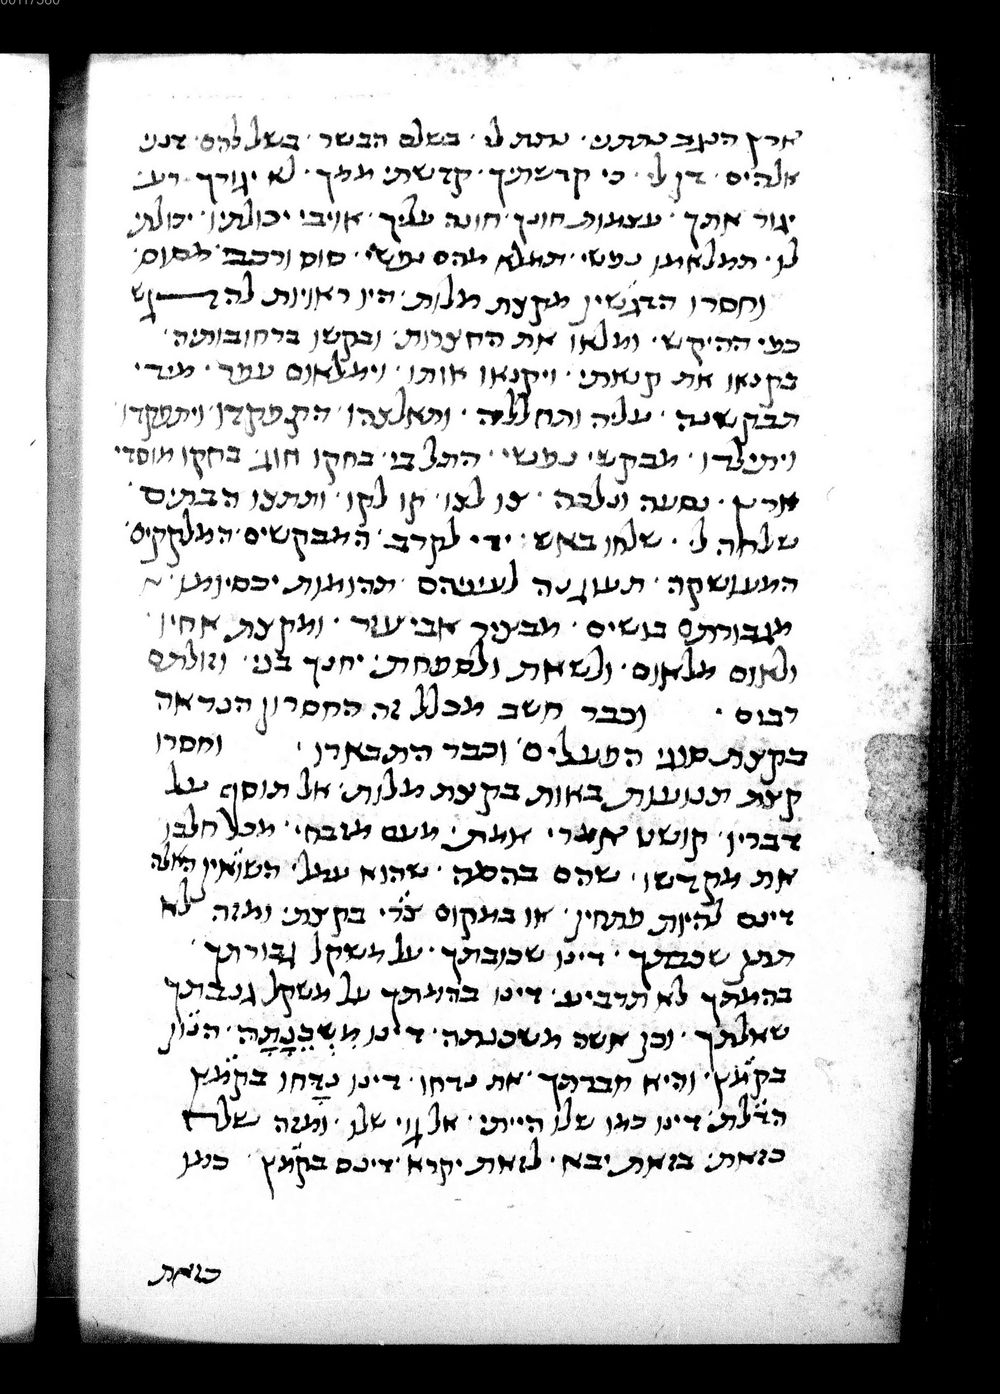 ארץ הנגב נתתני · נתת לי · בשלם הבשר · בשל להם · דנני
אלהים · דן לי · כי קדשתיך · קדשתי ממך · לא יגורך רע ·
יגור אתך · עצמות חונך חונה עליך · אויבי יכולתיו · יכולתי
לו · תמלאמו נפשי · תמלא מהם נפשי · סום ורכב · מסוס ·
וחסרו הדגשין מקצת מלות · היו ראויות להדגש
כמי ההיקש · ומלאו את החצרות · ובקשו ברחובותיה ·
בקנאו את קנאתי · ויקנאו אותו · וימלאום עפר · מידי
תבקשנה · עליה ותחללה · ותאלצהו התפקדו ויתפקדו
ויתילדו · מבקשי נפשי · התלבי · בחקו חוג · בחקו מוסדי
ארץ · נסעה ונלכה · צו לצו · קו לקו · ותתצו הבתים
שלחה לי · שלחו באש · ידי לקרב · המבקשים המלקקים ·
המעושקה · תעוגנה לעיניהם תהומות יכסיומו ·
מגבורתם בושים · מבציר אביעזר · ומקצת אחיו ·
ולאום מלאום · ולשאת ולספחת · יחנך בני · וזולתם
רבים · וכבר חשב מכלל זה החסרון הנראה
בקצת מיני הפעלים · וכבר התבארו · וחסרו
קצת תנועות באות בקצת מלות · אל תוסף על
דבריו · קושט אמרי אמת · מעם מזבחי · מכל חלבו
את מקדשו · שהם בהסמך · שהוא עמלי השואין האלה
דינם להיות פתחין · או במקום צרי בקצת · ומזה לא
תתן שכבתך · דינו שכובתך · על משקל גבורתך ·
בהמתך לא תרביע · דינו בהמתך על משקל גנבתך
שאלתך · וכן אשה משכנתה · דינו מִשְׁכֶנָתָהּ · הנון
בקמץ · והיא חברתך · את נדחו · דינו נִדָחו בקמץ
הדלת · דינו כמו שלו הייתי · אל גוי שלו · ומזה שלא
כזאת · בזאת יבא · לזאת יקרא · דינם בקמץ כמו
כזאת